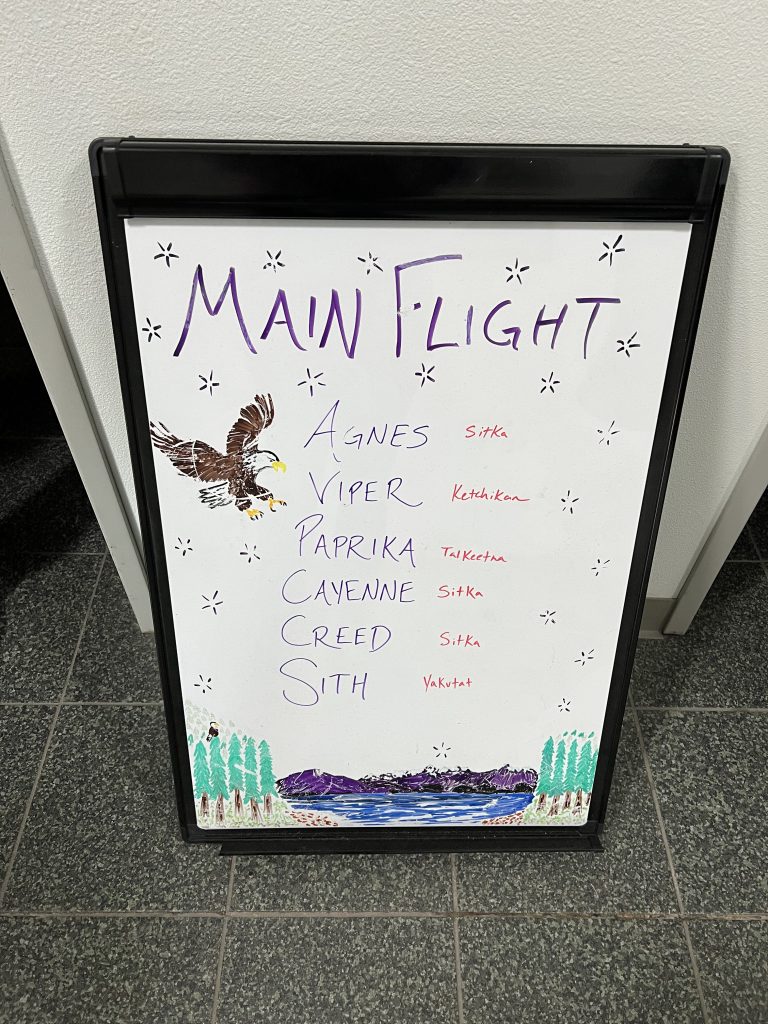 MAIN FLIGHT
AGNES Sitka
VIPER Ketchikan
PAPRIKA Talkeetna
CAYENNE Sitka
CREED Sitka
SITH Yakutat